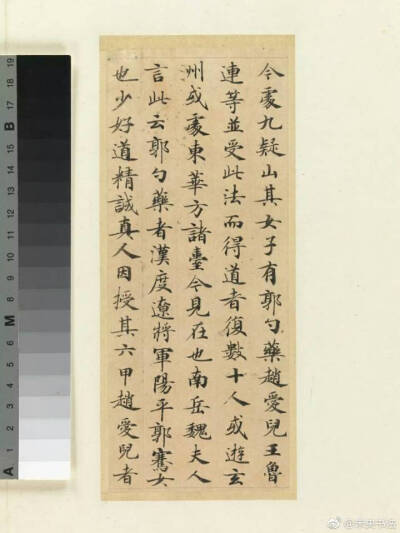 今處九疑山其女子有郭勺藥趙愛兒王魯
連等並受此法而得道者復數十人或遊玄
洲或處東華方諸臺今見在也南岳魏夫人
言此云郭勺藥者漢度遼將軍陽平郭騫女
也少好道精誠真人因授其六甲趙愛兒者
A 1 2 3 4 5 6 M 8 9 10 11 12 13 14 15 B 17 18 19